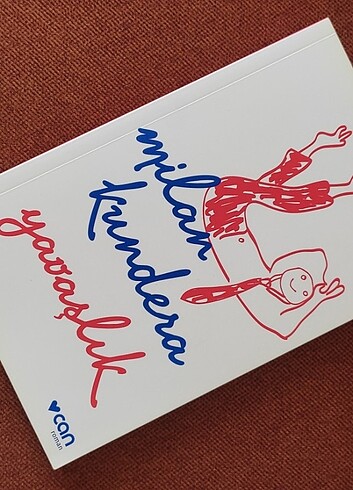 milan
kundera
yavaşlık
can
roman